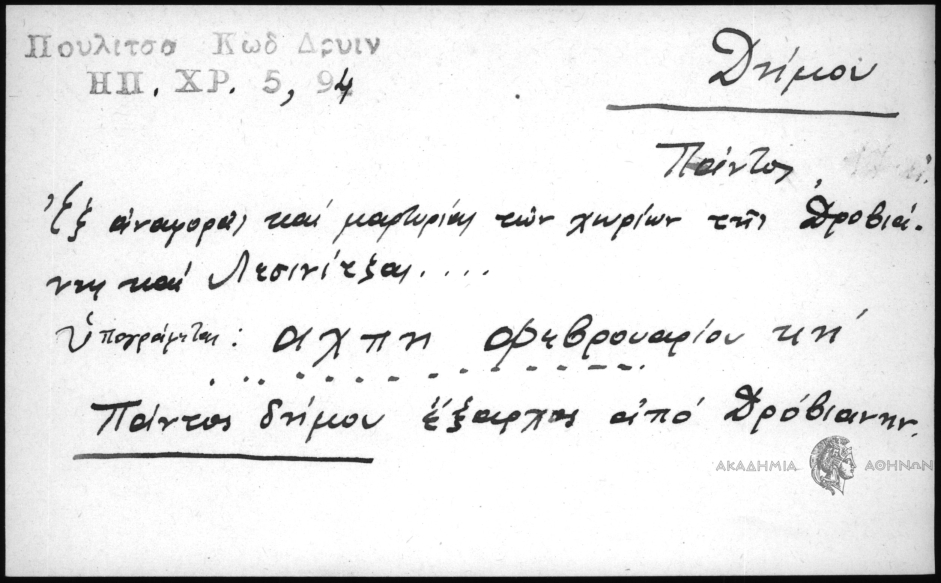 Πουλιτσα Κωδ Δρυιν
ΗΠ. ΧΡ. 5, 94
Δήμου
Πάντος,
Ἐξ ἀναφορᾶς καί μαρτυρίας τῶν χωρίων τῆς Δροβιά-
νης καί Λεσινίτζας....
ὑπογράφεται: αχπη φεβρουαρίου κή
Πάντος δήμου ἔξαρχος ἀπό Δρόβιανην.
ΑΚΑΔΗΜΙΑ ΑΘΗΝΩΝ